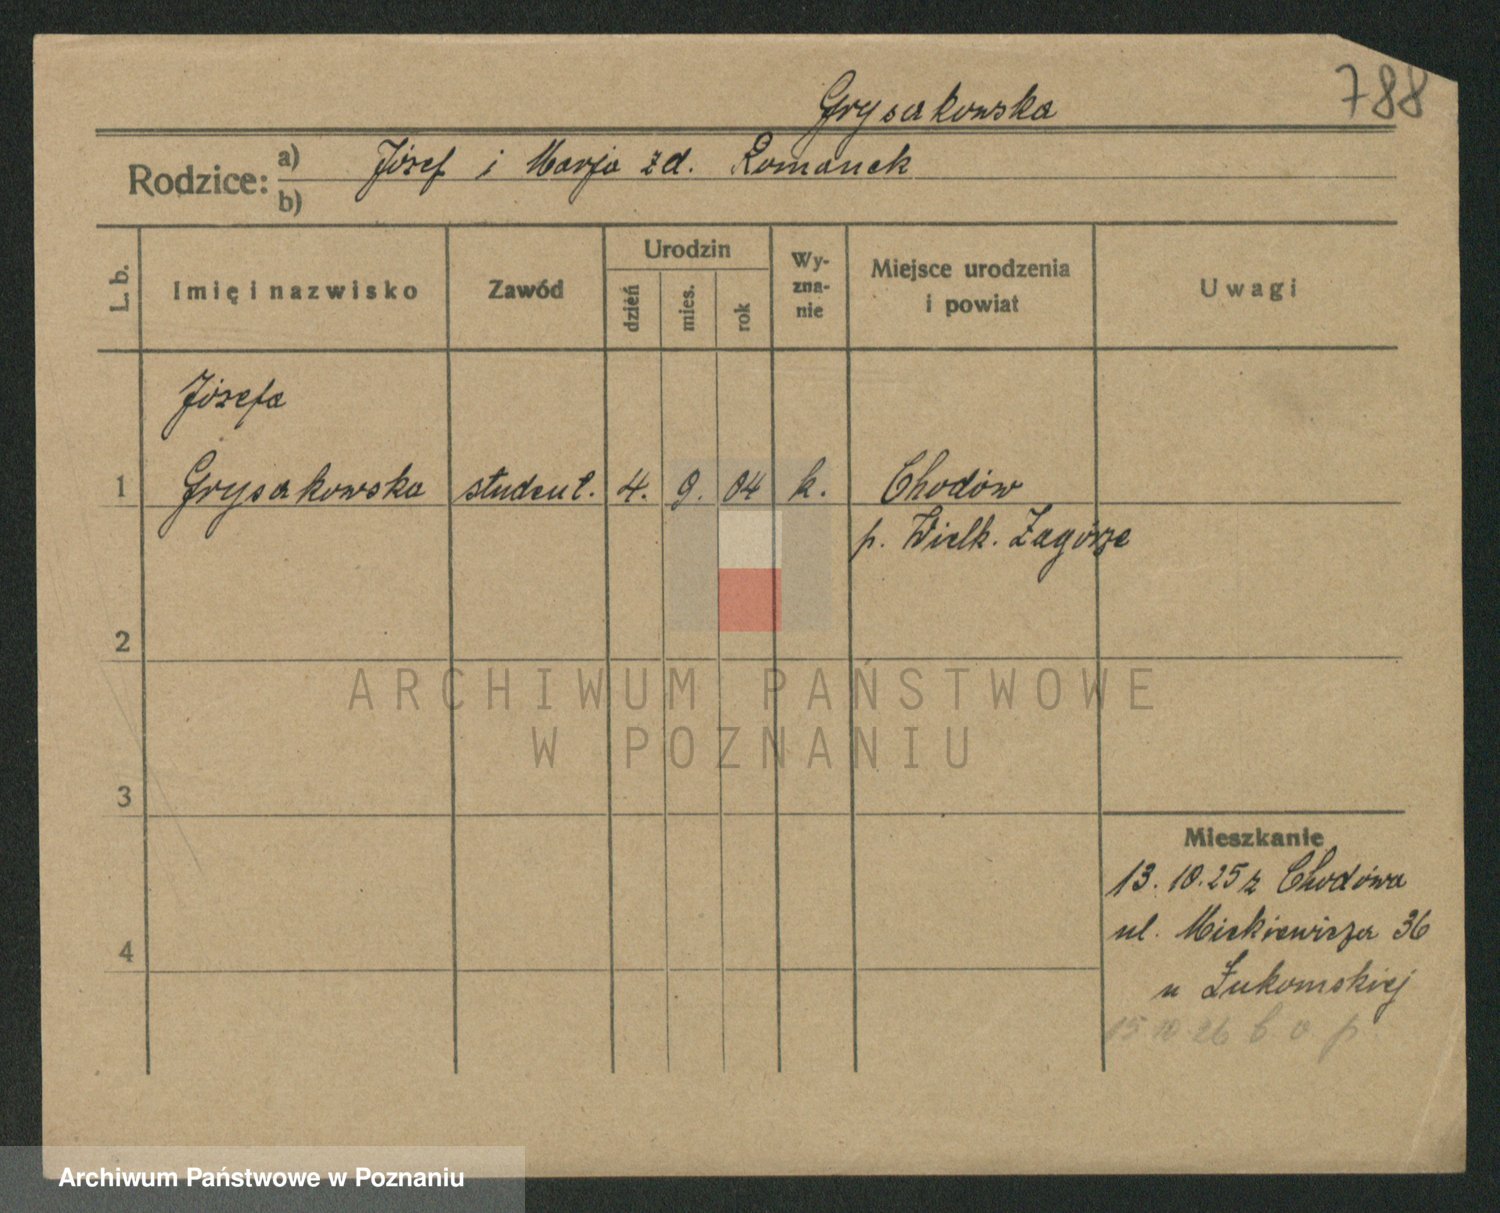 788
Grysakowska
Rodzice: a) Józef i Marja zd. Romanek
b)
L. b. Imię i nazwisko Zawód Urodzin dzień mies. rok Wy-zna-nie Miejsce urodzenia i powiat Uwagi
Józefa
1 Grysakowska student. 4. 9. 04 k. Chodów
p. Wielk. Zagórze
2
ARCHIWUM PAŃSTWOWE
W POZNANIU
3
Mieszkanie
13. 10. 25 z Chodówa
ul. Mickiewicza 36
4
u Łukomskiej
15 10 26 b o p.
Archiwum Państwowe w Poznaniu